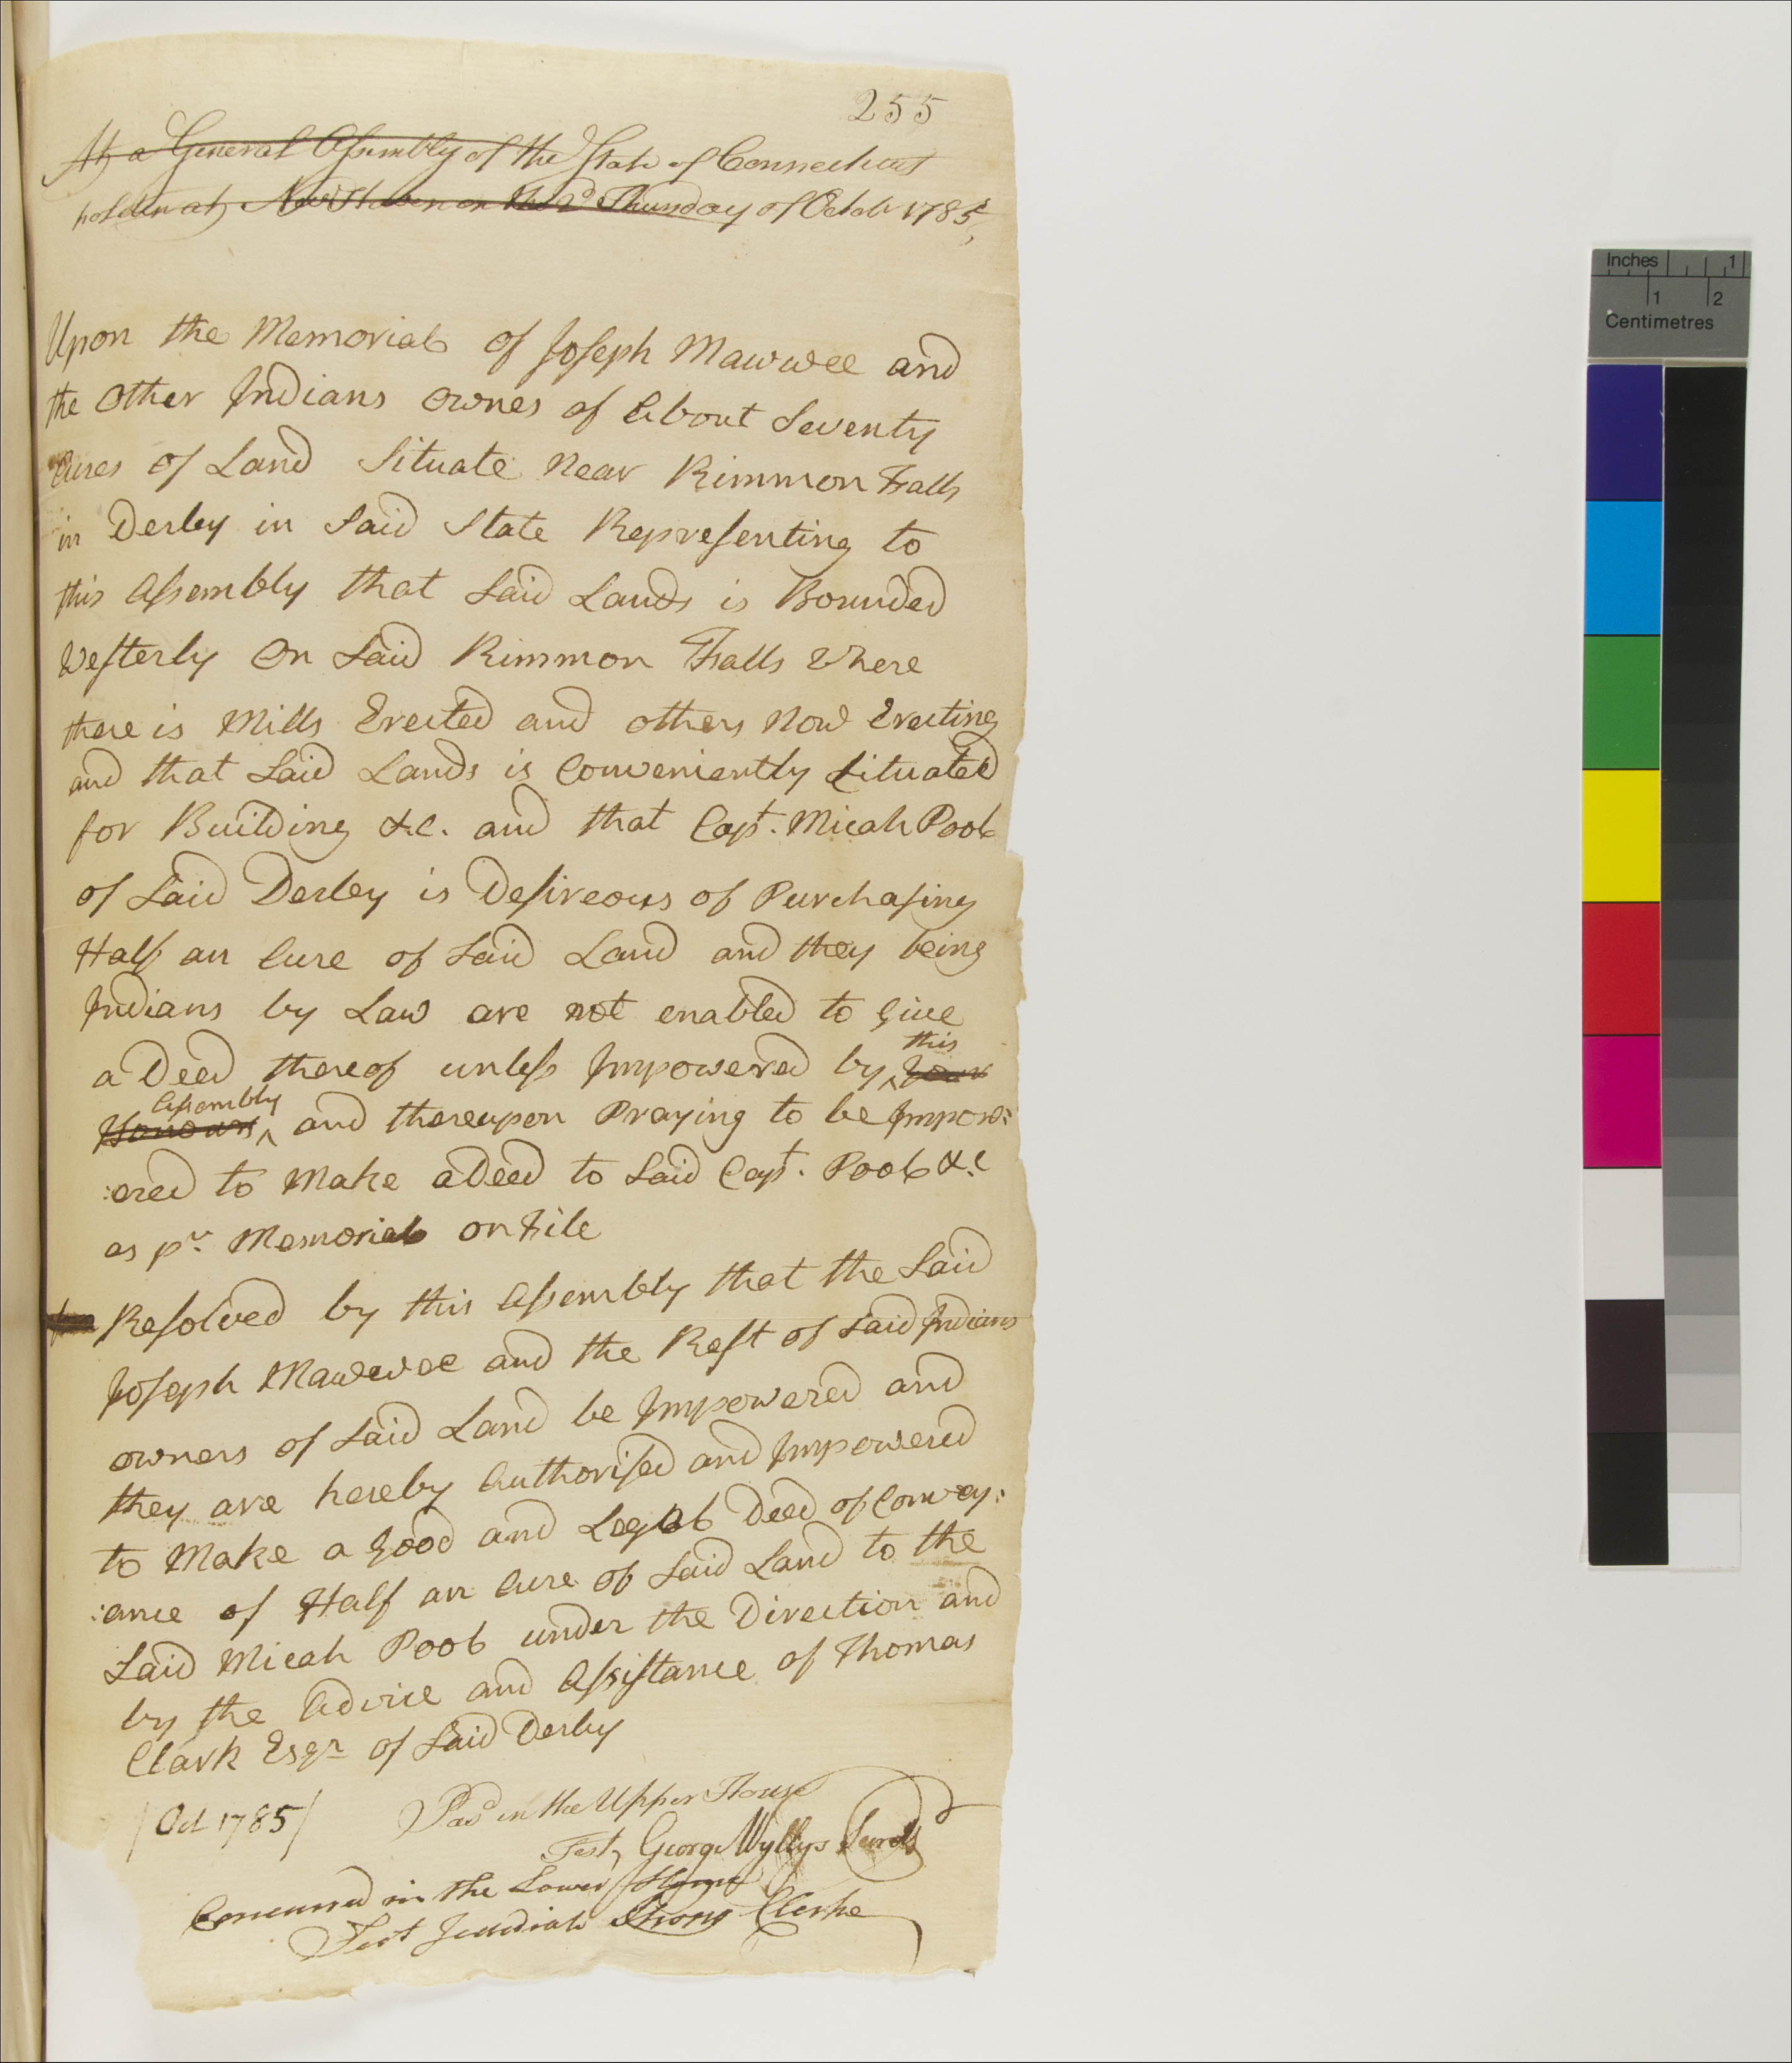 255
At a General Assembly of the State of Connecticut
holden at New Haven on the 2d Thursday of Octobr 1785,
Upon the Memorial of Joseph Mawwee and
the Other Indians Ownes of About Seventy
Acres of Land Situate Near Rimmon Falls
in Derby in Said State Representing to
this Assembly that Said Lands is Bounded
Westerly On Said Rimmon Falls Where
there is Mills Erected and others Now Erecting
and that Said Lands is Conveniently Situated
for Building &.C. and that Capt. Micah Pool
of Said Derby is Desireous of Purchasing
Half an Acre of Said Land and they being
Indians by Law are not enabled to Give
this
a Deed thereof unless Impowered by ^ Your
Assembly
Honours ^ and thereupon Praying to be Impow:
:ered to Make a Deed to Said Capt. Pool &.C
as pr. Memorial on File
Resolved by this Assembly that the Said
Joseph Mawwee and the Rest of Said Indians
owners of Said Land be Impowered and
they are hereby Authorised and Impowered
to Make a Good and Legal Deed of Convey:
:ance of Half an Acre of Said Land to the
Said Micah Pool under the Direction and
by the Advice and Assistance of Thomas
Clark Esqr of Said Derby
/Oct 1785/
Pasd in the Upper House
Test, George Wyllys Secretr
Concurred in the Lower House
Test Jedidiah Strong Clerke